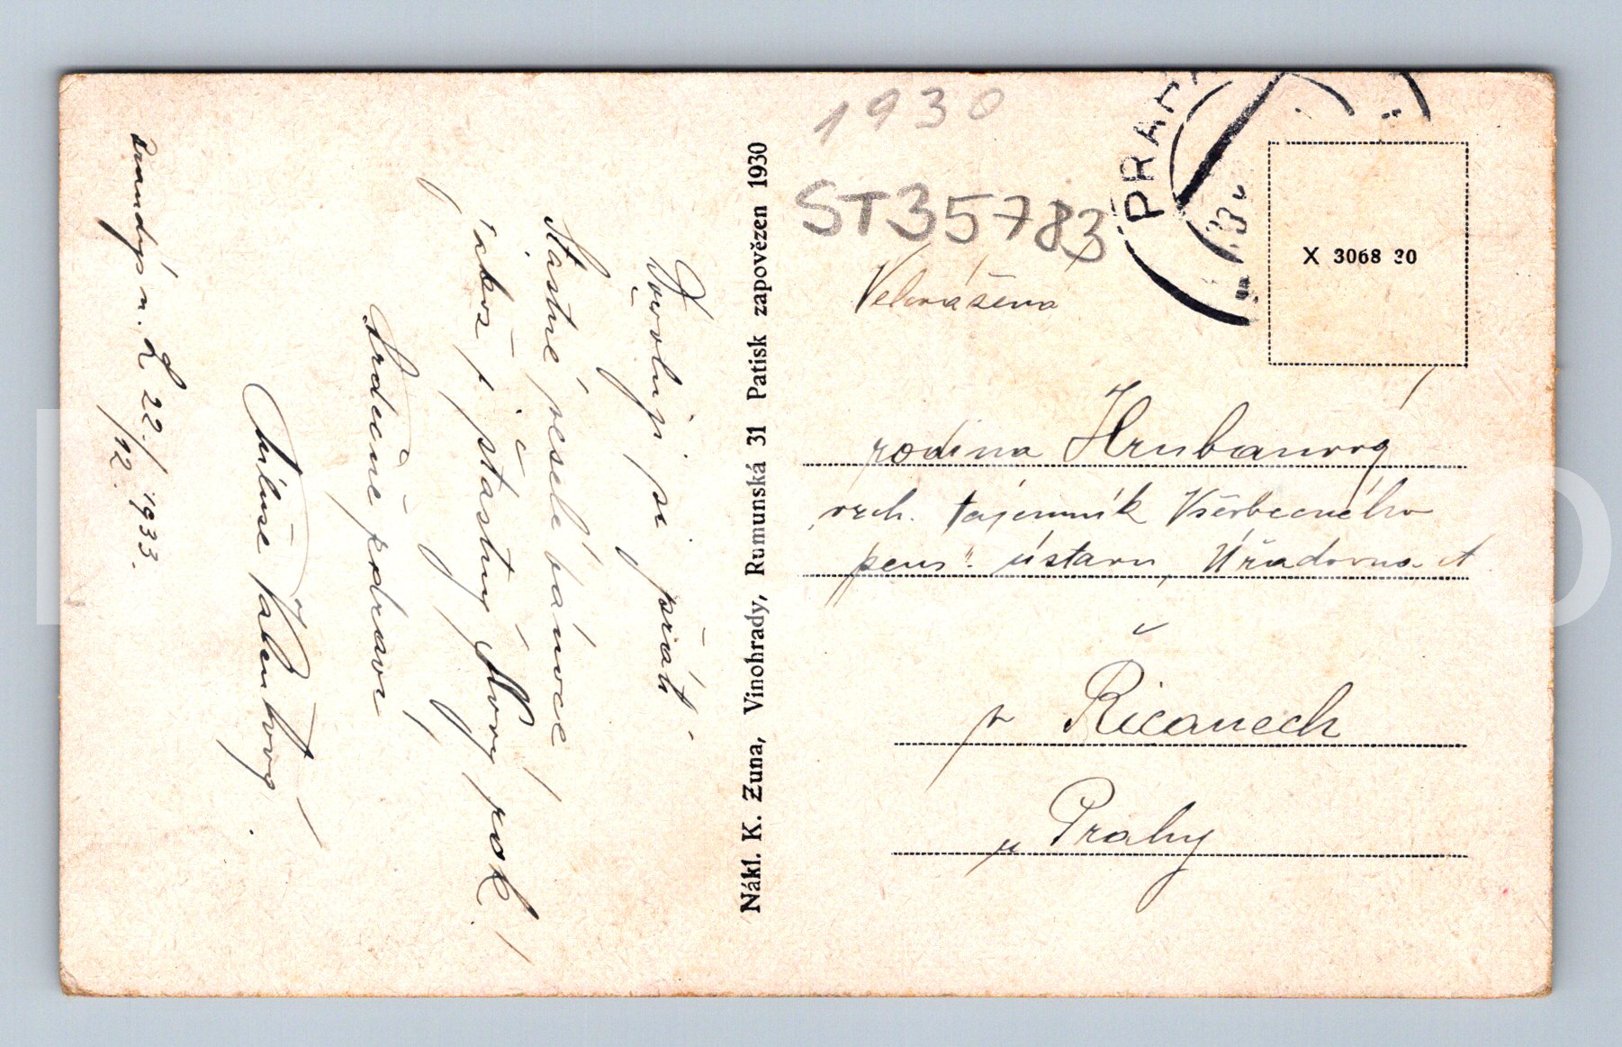 Brandýs n. L. 22./12. 1933.
Dovoluji si přáti
Šťastné veselé vánoce
jakož i šťastný Nový rok!
Srdečně pozdraví
Nákl. K. Zuna, Vinohrady, Rumunská 31 Patisk zapovězen 1930
1930
ST35783
PRAHA
X 3068 30
Velevážená
rodina Hrubanový
vrch. tajemník Všeobecného
pens. ústavu, Úřadovna
v Říčanech
u Prahy